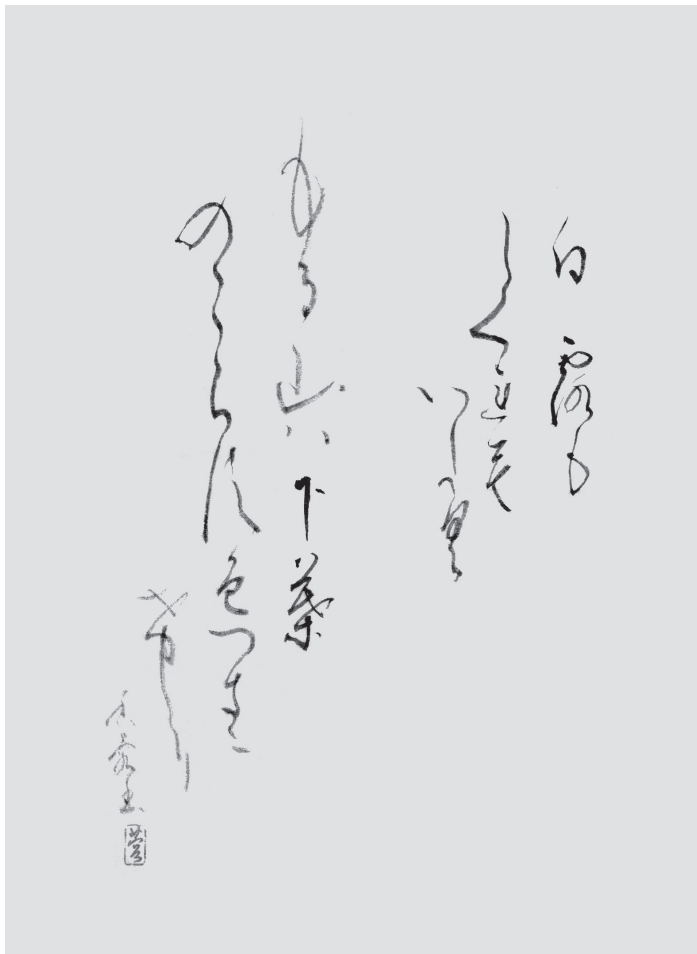 白露も
しくれも
いたく
もる山は下葉
のこらす色つき
にけり